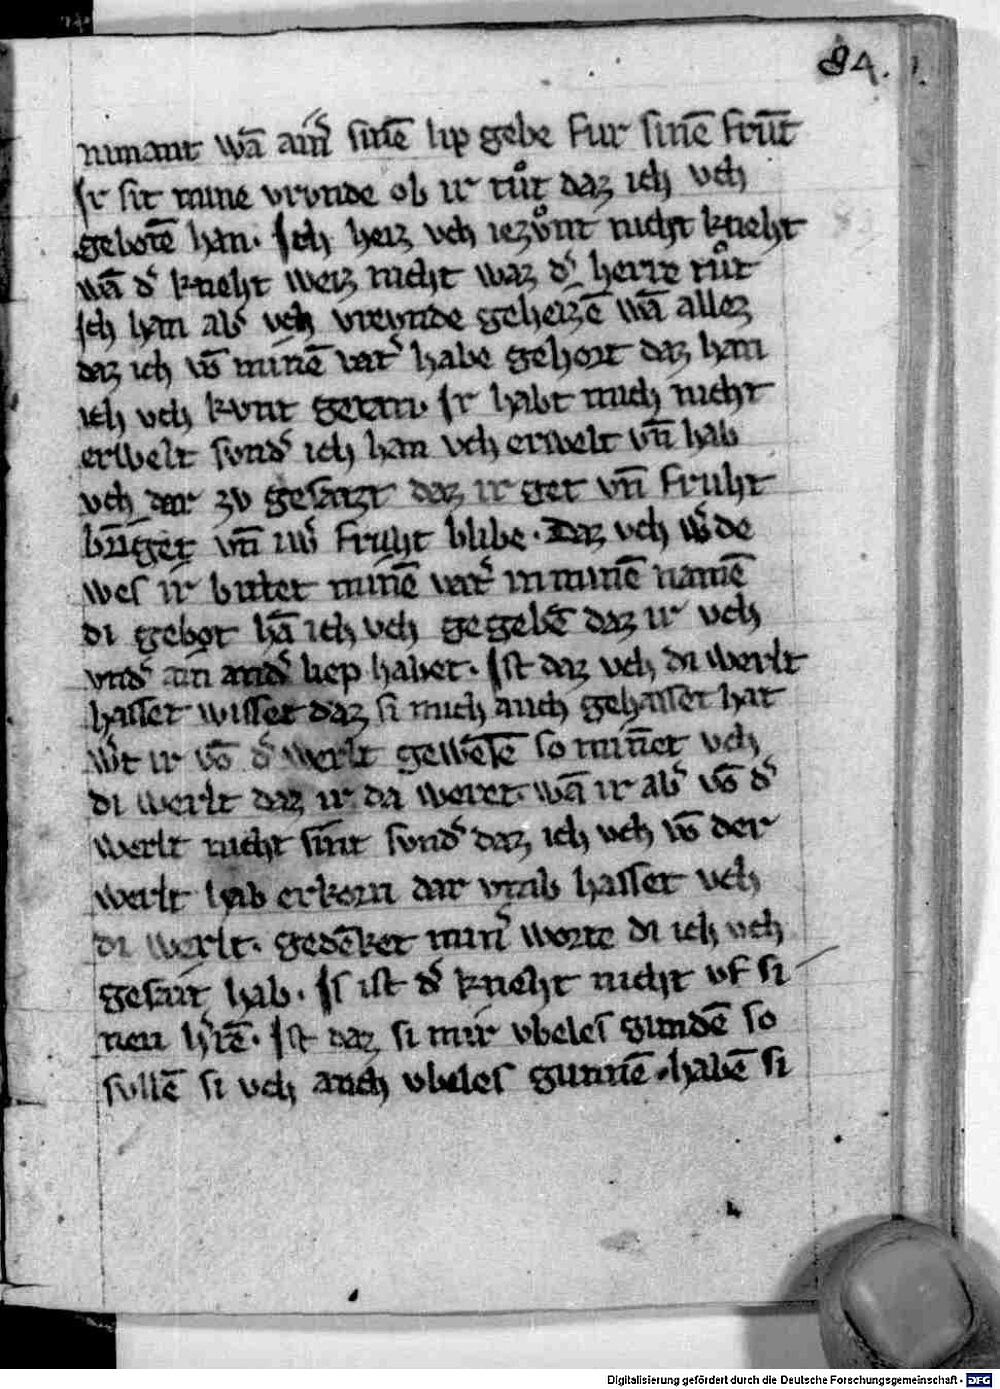 84.
nimant wā ain̄ sinē lip gebe fur sinē frūt
Ir sit mine vrvnde ob ir tůt daz ich vch
gebotē han. Ich heiz vch iezůnt nicht kneht
wā d̾ kneht weiz nicht waz d̾ herre tůt
Ich han ab̾ vch vrevnde geheizē wā allez
daz ich vō minē vat̾ habe gehort daz han
ich vch kvnt getan. Ir habt mich nicht
erwelt svnd̾ ich han vch erwelt vn̄ hab
vch dar zv gesazt daz ir get vn̄ fruht
bringet vn̄ iw̾ fruht blibe. Daz vch w̾de
wes ir bittet minē vat̾ in minē namē
di gebot hā ich vch gegebē daz ir vch
vnd̾ ain and̾ liep habet. Ist daz vch di werlt
hasset wisset daz si mich auch gehasset hat
w̾t ir vō d̾ werlt gewesē so minnet vch
di werlt daz ir da weret. wā ir ab̾ vō d̾
werlt nicht sint svnd̾ daz ich vch vō der
werlt hab erkorn dar vmb hasset vch
di werlt. gedēket min̾ worte di ich vch
gesait hab. Is ist d̾ kneht nicht vf si
nen h̾rē. Ist daz si mir vbeles gundē so
svllē si vch auch vbeles gunnē. habē si
Digitalisierung gefördert durch die Deutsche Forschungsgemeinschaft - DFG